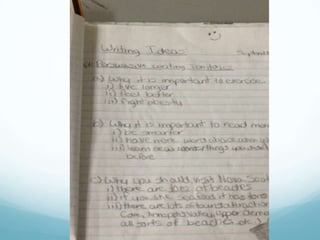 Writing Ideas
Persuasive writing
a) Why it is important to exercise
i) live longer
ii) feel better
iii) fight obesity
b) Why it is important to read more
i) be smarter
ii) have more word choice when
iii) learn new things you didn't
before
c) Why you should visit Nova Scot
i) there are lots of beaches
ii) if you like seafood it has tons
iii) there are lots of tourist attraction
Cove, Annapolis Valley, Upper Clements
all sorts of beaches etc.)